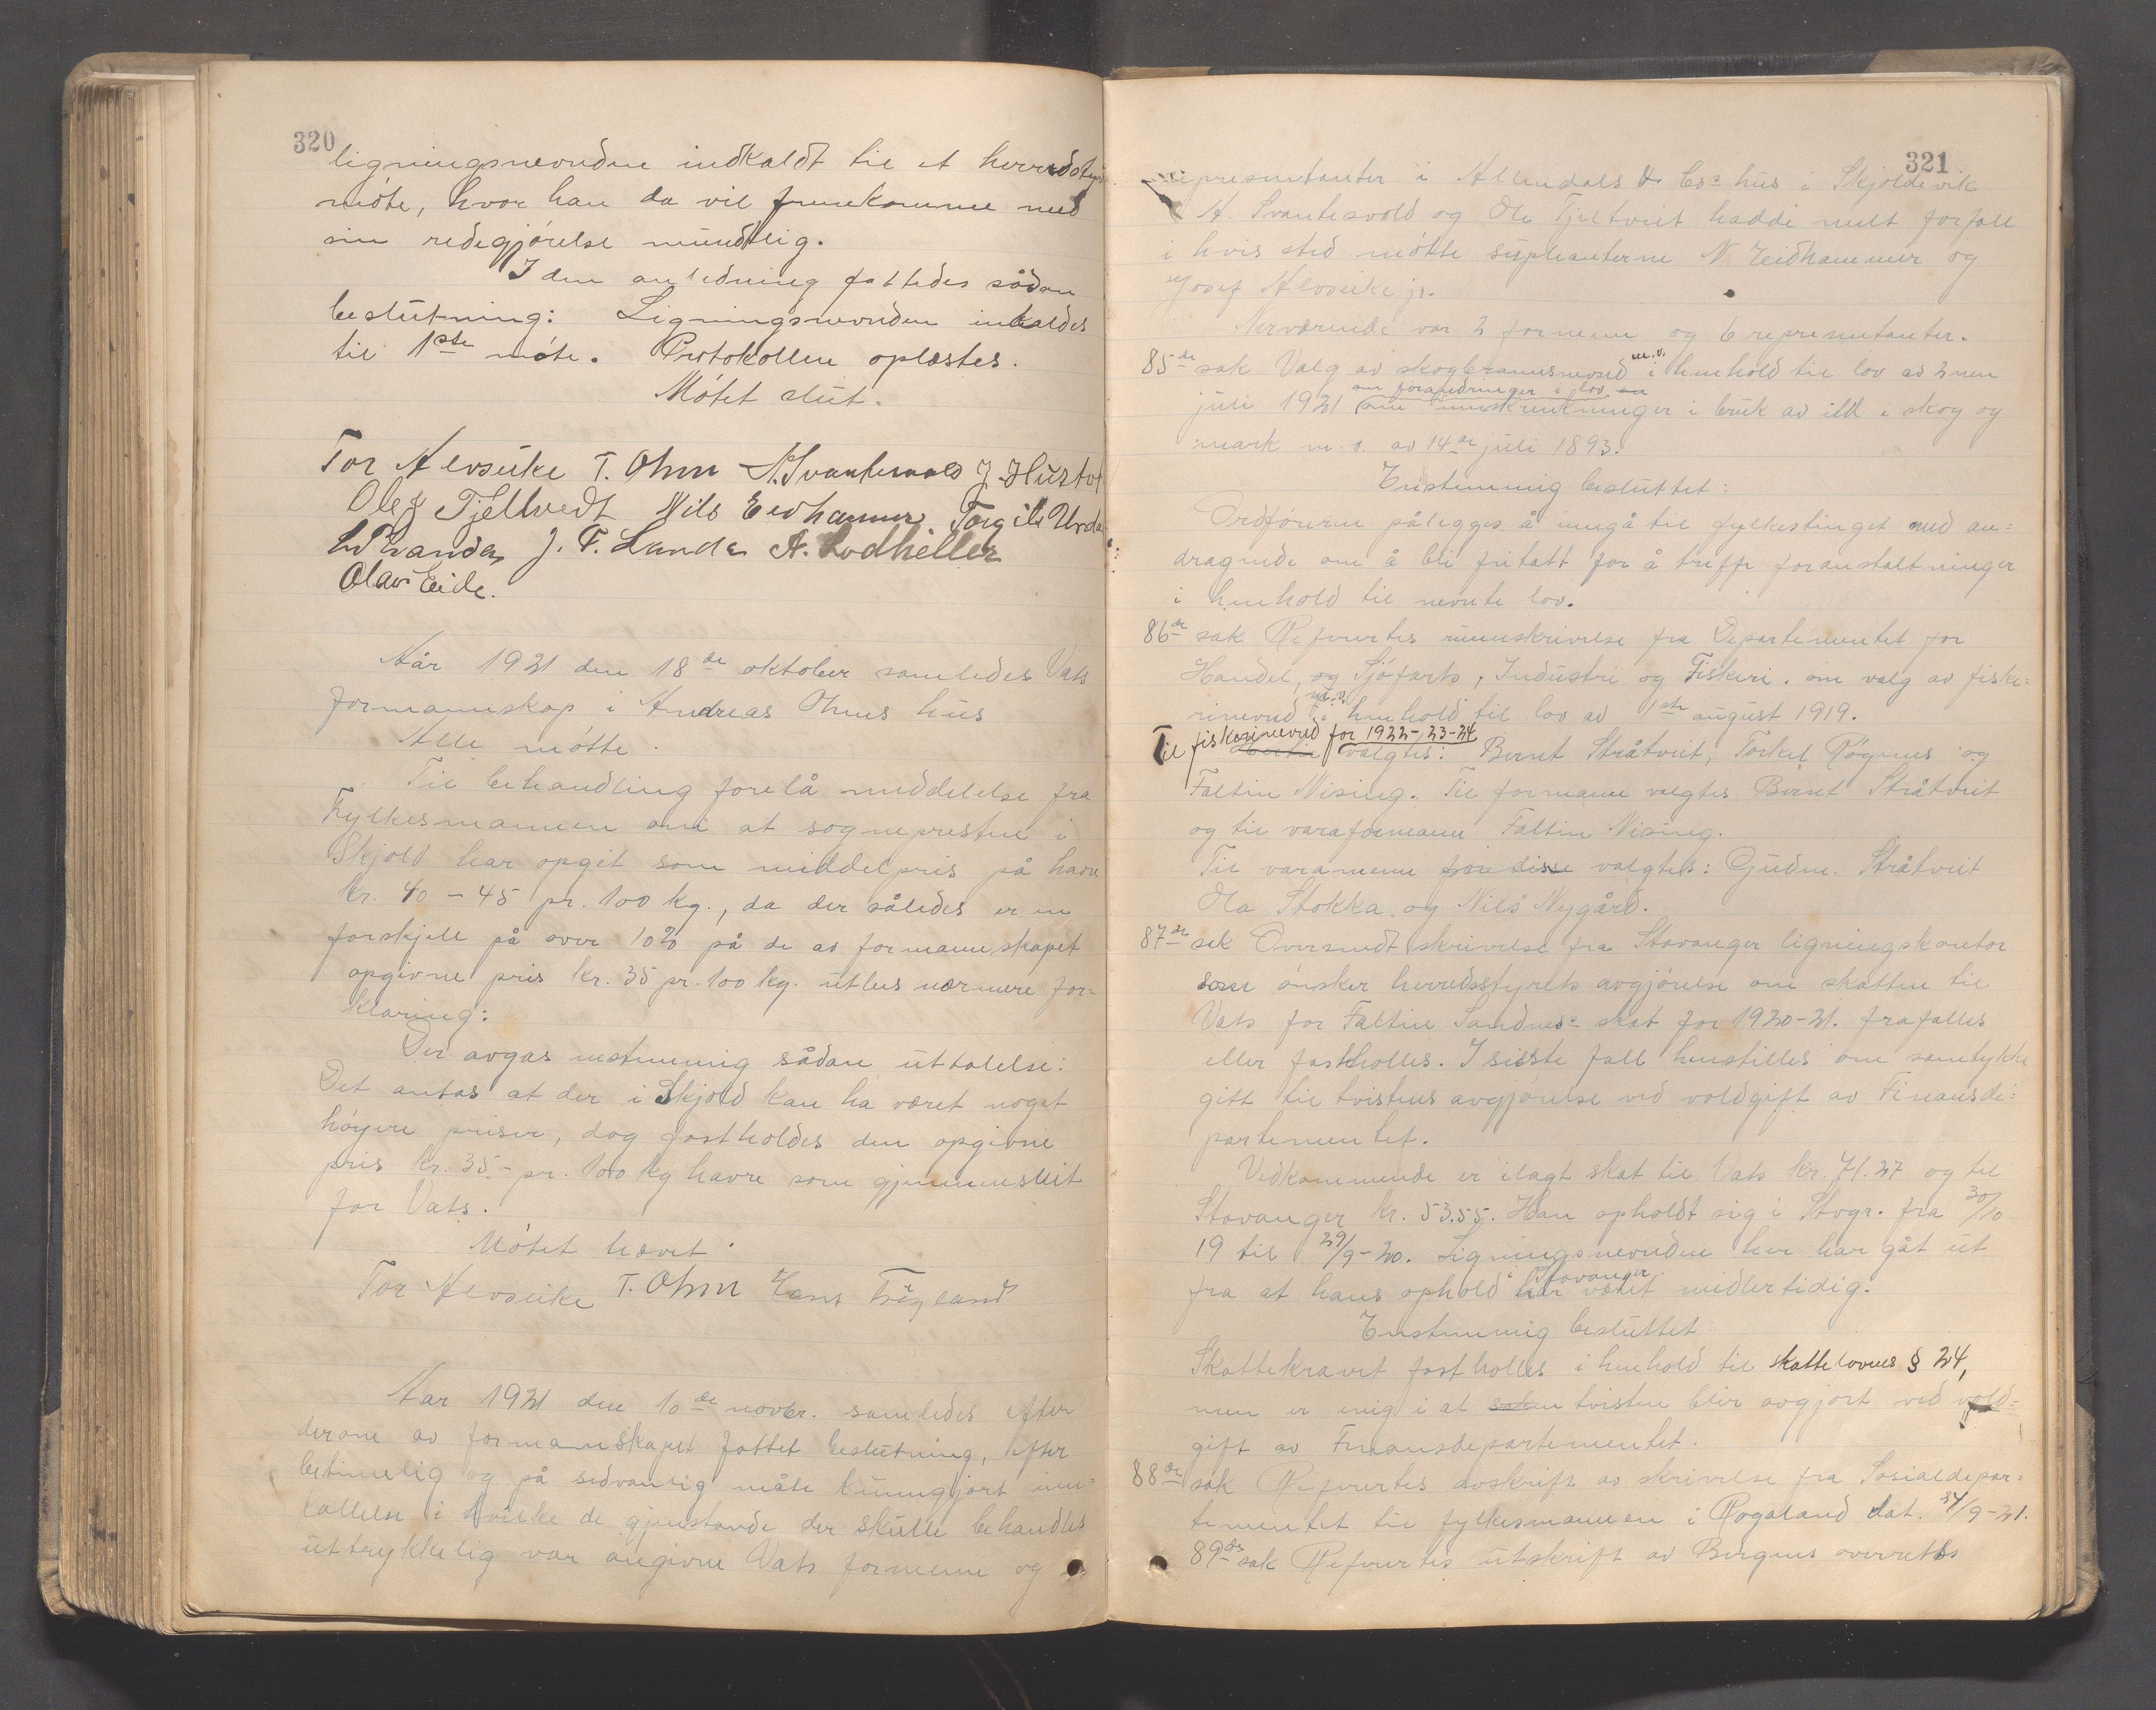 320
ligningsnevnden indkaldt til et herredsty
møte, hvor han da vil fremkomme med
sin redegjørelse mundtlig.
I den anledning fattedes sådan
beslutning: Ligningsnevnden indkaldes
til 1ste møte. Protokollen oplæstes.
Møtet slut.
Tor Alvseike T. Ohm A. Svantesvold J. Hustv
Ole J Tjeltvedt Nils Eidhammer Torgils Urda
J. T. Landa A. Lodheller
Olav Eide.
Aår 1921 den 18de oktober samledes Vats
formannskap i Andreas Ohms hus
Alle møtte.
Til behandling forelå meddelelse fra
Fylkesmannen om at sogneprestene i
Skjold har opgit som middelpris på havre
kr. 40 - 45 pr. 100 kg., da der således er en
forskjell på over 10% på de av formannskapet
opgivne pris kr. 35 pr. 100 kg. utbes nærmere for=
klaring:
Der avgas enstemmig sådan uttalelse:
Det antas at der i Skjold kan ha været noget
høyere priser, dog fastholdes den opgivne
pris kr. 35 - pr. 100 kg havre som gjennemsnit
for Vats.
Møtet hævet.
Tor Alvseike T. Ohm Hans Frøyland
Aar 1921 den 10de novbr. samledes efter
derom av formannskapet fattet beslutning, efter
betimelig og på sedvanlig måte kunngjort inn=
kallelse i hvilke de gjenstande der skulle behandles
uttrykkelig var angivne Vats formenn og
321
representanter i Allendals & Co= hus i Skjoldevik
A. Svantesvold og Ole Tjeltveit hadde meldt forfall
i hvis sted møtte supleanterne N Eeidhammer og
Josef Alvseike jr.
Nerværende var 2 formenn og 6 representanter.
85de sak Valg av skogbrannsnevnd m.v. i henhold til lov av 2nen
om forandringer i lov om
juli 1921 om innskrenkninger i bruk av ild i skog og
mark m. v. av 14de juli 1893.
Enstemmig besluttet:
Ordføreren pålegges å inngå til fylkestinget med an=
dragende om å bli fritatt for å treffe foranstaltninger
i henhold til nevnte lov.
86de sak Refrertes rundskrivelse fra Departementet for
Handel, og Sjøfarts, Industri og Fiskeri. om valg av fiske=
rinevnd m.v. i henhold til lov av 1ste august 1919.
Til fiskerinevnd for 1922-23-24
valgtes: Bernt Stråtveit, Torkel Røgnes og
Faltin Nising. Til formann valgtes Bernt Stråtveit
og til varaformann Faltin Nising.
Til varamenn for disse valgtes: Gudm. Stråtveit
Ola Stokka og Nils Nygård.
87de sak Oversendt skrivelse fra Stavanger ligningskontor
som ønsker herredsstyrets avgjørelse om skatten til
Vats for Faltin Sandnes= skat for 1920-21. frafalles
eller fastholles. I sidste fall henstilles om samtykke
gitt til tvistens avgjørelse ved voldgift av Finansde=
partementet.
Vedkommende er ilagt skat til Vats kr. 71.27 og til
Stavanger kr. 53.55. Han opholdt sig i Stvgr. fra 30/10
19 til 29/9-20. Ligningsnevnden her har gåt ut
fra at hans ophold i Stavanger har været midlertidig.
Enstemmig besluttet
Skattekravet fastholles i henhold til skattelovens § 24,
men er enig i at saken tvisten blir avgjort ved vold=
gift av Finansdepartementet.
88de sak Refrertes avskrift av skrivelse fra Sosialdepar=
tementet til fylkesmannen i Rogaland dat. 24/9-21.
89de sak Refrertes utskrift av Bergens overretts